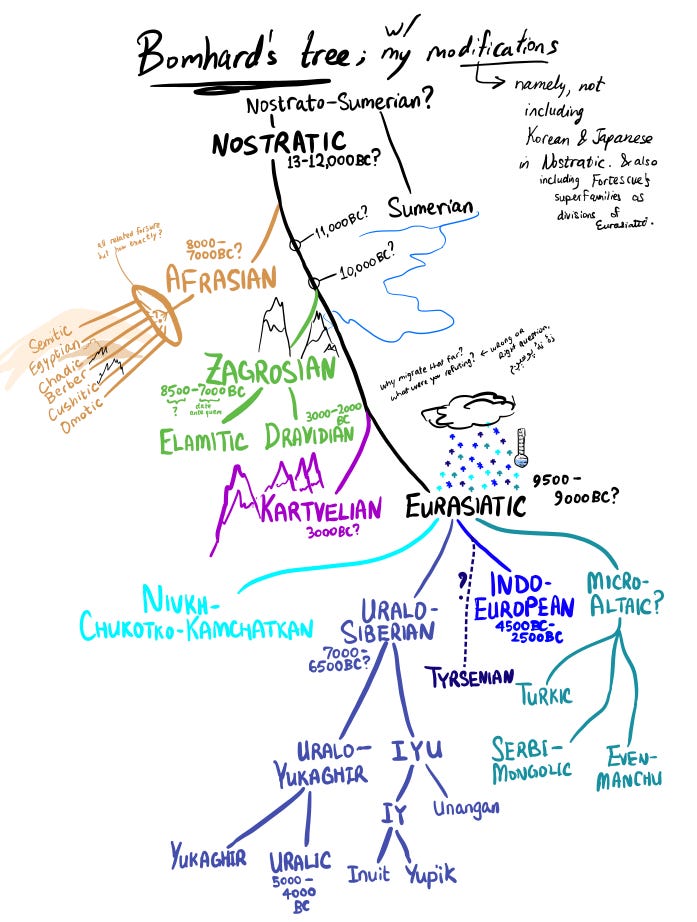 w/
Bomhard's tree; my modifications
namely, not
including
Korean & Japanese
in Nostratic. & also
including Fortescue's
superfamilies as
divisions of
Eurasiatic.
Nostrato-Sumerian?
NOSTRATIC
13-12,000BC?
Sumerian
11,000BC?
10,000BC?
all related forsure
but how exactly?
8000-
7000BC?
AFRASIAN
Semitic
Egyptian
Chadic
Berber
Cushitic
Omotic
ZAGROSIAN
8500-7000BC
?
date
ante quem
3000-2000
BC
ELAMITIC
DRAVIDIAN
KARTVELIAN
3000BC?
Why migrate that far? ← wrong or
what were you refuting? Right question.
EURASIATIC
9500-
9000BC?
NIVKH-
CHUKOTKO-KAMCHATKAN
URALO-
SIBERIAN
7000-
6500BC?
?
TYRSENIAN
INDO-
EUROPEAN
4500BC-
2500BC
MICRO-
ALTAIC?
TURKIC
SERBI-
MONGOLIC
EVEN-
MANCHU
URALO-
YUKAGHIR
IYU
IY
Unangan
YUKAGHIR
URALIC
5000-
4000
BC
Inuit
Yupik